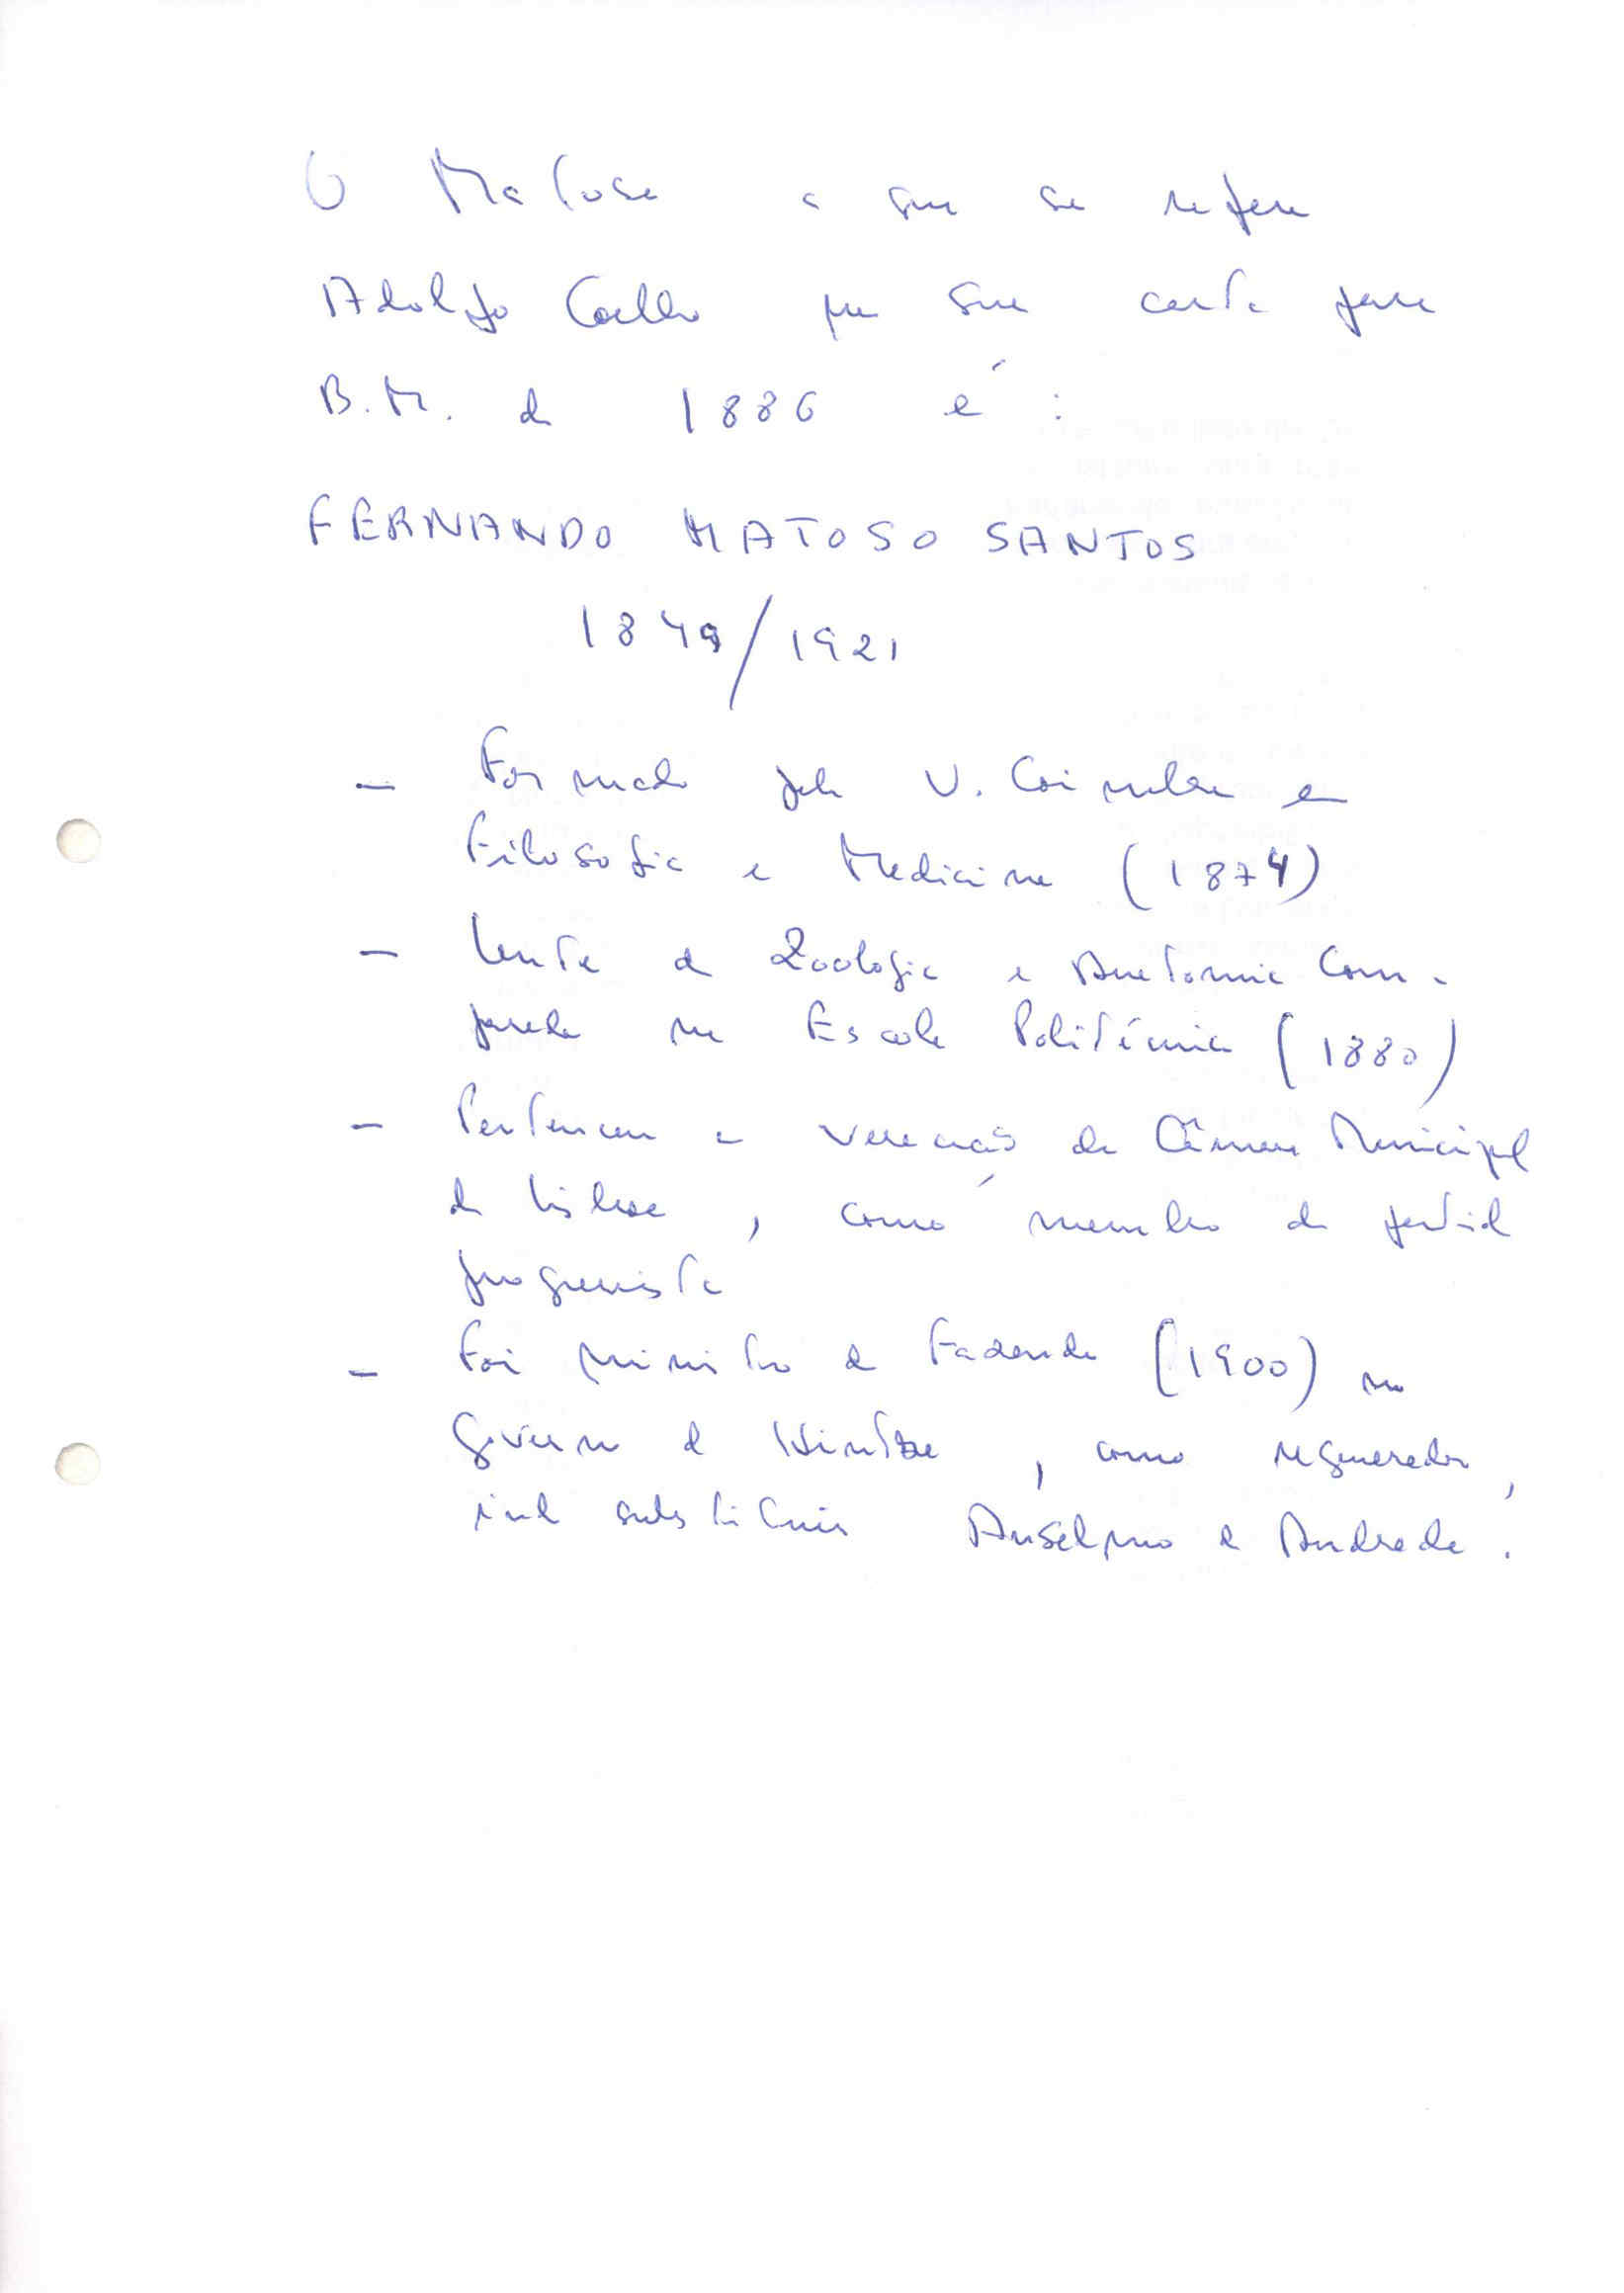 O Matoso a que se refere
Adolfo Coelho na sua carta para
B.M. de 1886 é :
FERNANDO MATOSO SANTOS
1849/1921
- Formado pela U. Coimbra em
Filosofia e Medicina (1874)
- Lente de Zoologia e Anatomia Com-
parada na Escola Politécnica (1880)
- Pertenceu à vereação da Câmara Municipal
de Lisboa, como membro do partido
progressista
- Foi Ministro da Fazenda (1900) no
governo de Hintze, como regenerador,
substituir Anselmo de Andrade.